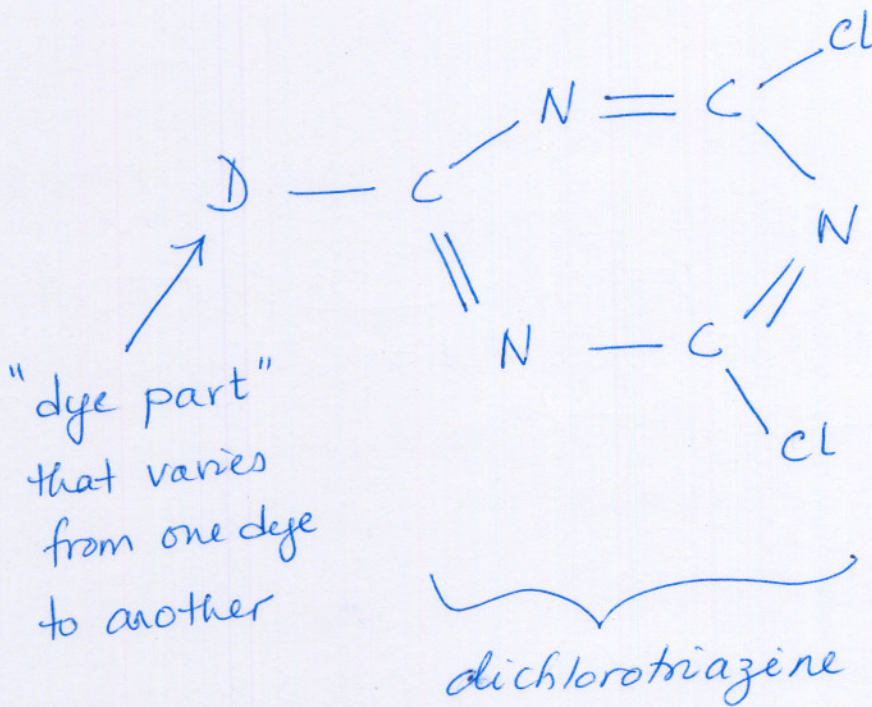 Cl
N = C
D — C
N
N — C
Cl
"dye part"
that varies
from one dye
to another
dichlorotriazine